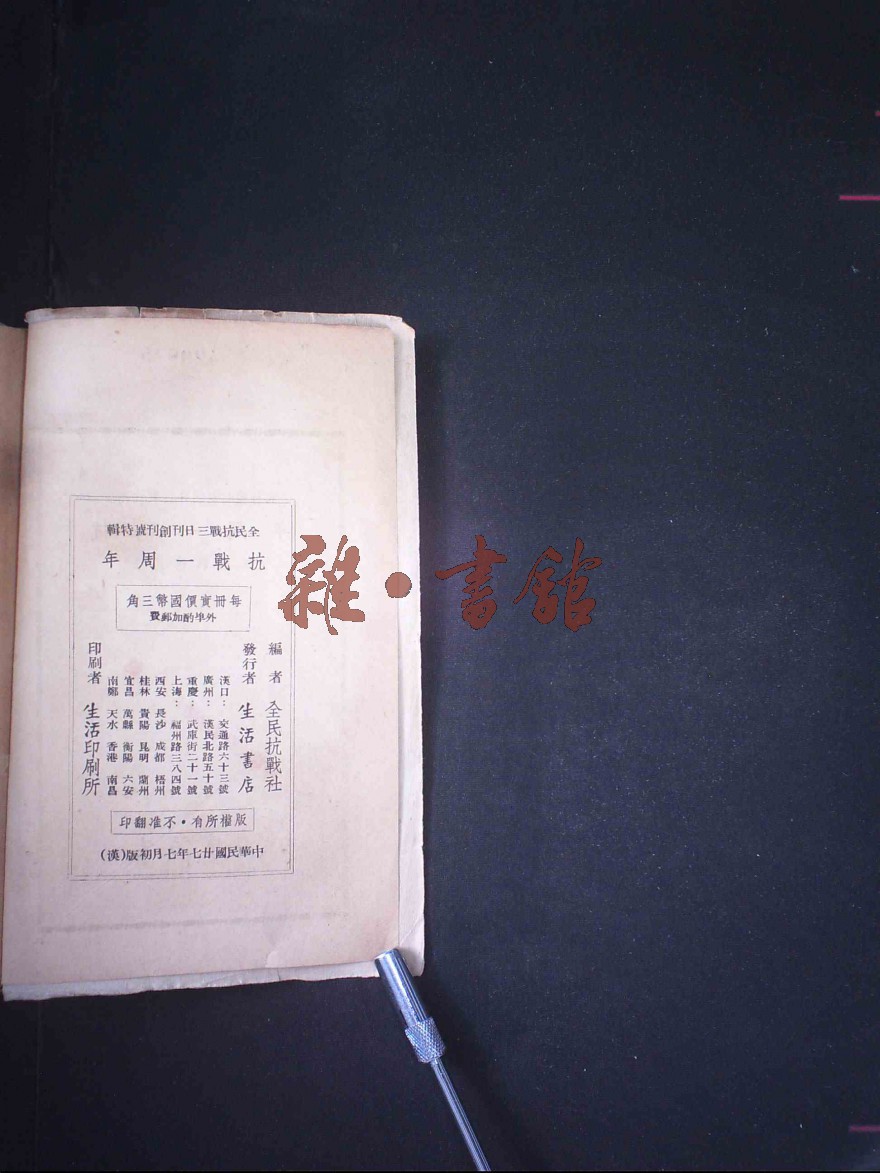 全民抗戰三日刊創刊號特輯
抗戰一周年
每冊實價國幣三角
外埠酌加郵費
編者 全民抗戰社
發行者 生活書店
漢口：交通路六十三號
廣州：漢民北路五十號
重慶：武庫街二十一號
上海：福州路三八四號
西安 長沙 成都 梧州
桂林 貴陽 昆明 蘭州
宜昌 萬縣 衡陽 六安
南鄭 天水 香港 南昌
印刷者 生活印刷所
版權所有·不准翻印
中華民國廿七年七月初版(漢)
雜·書館